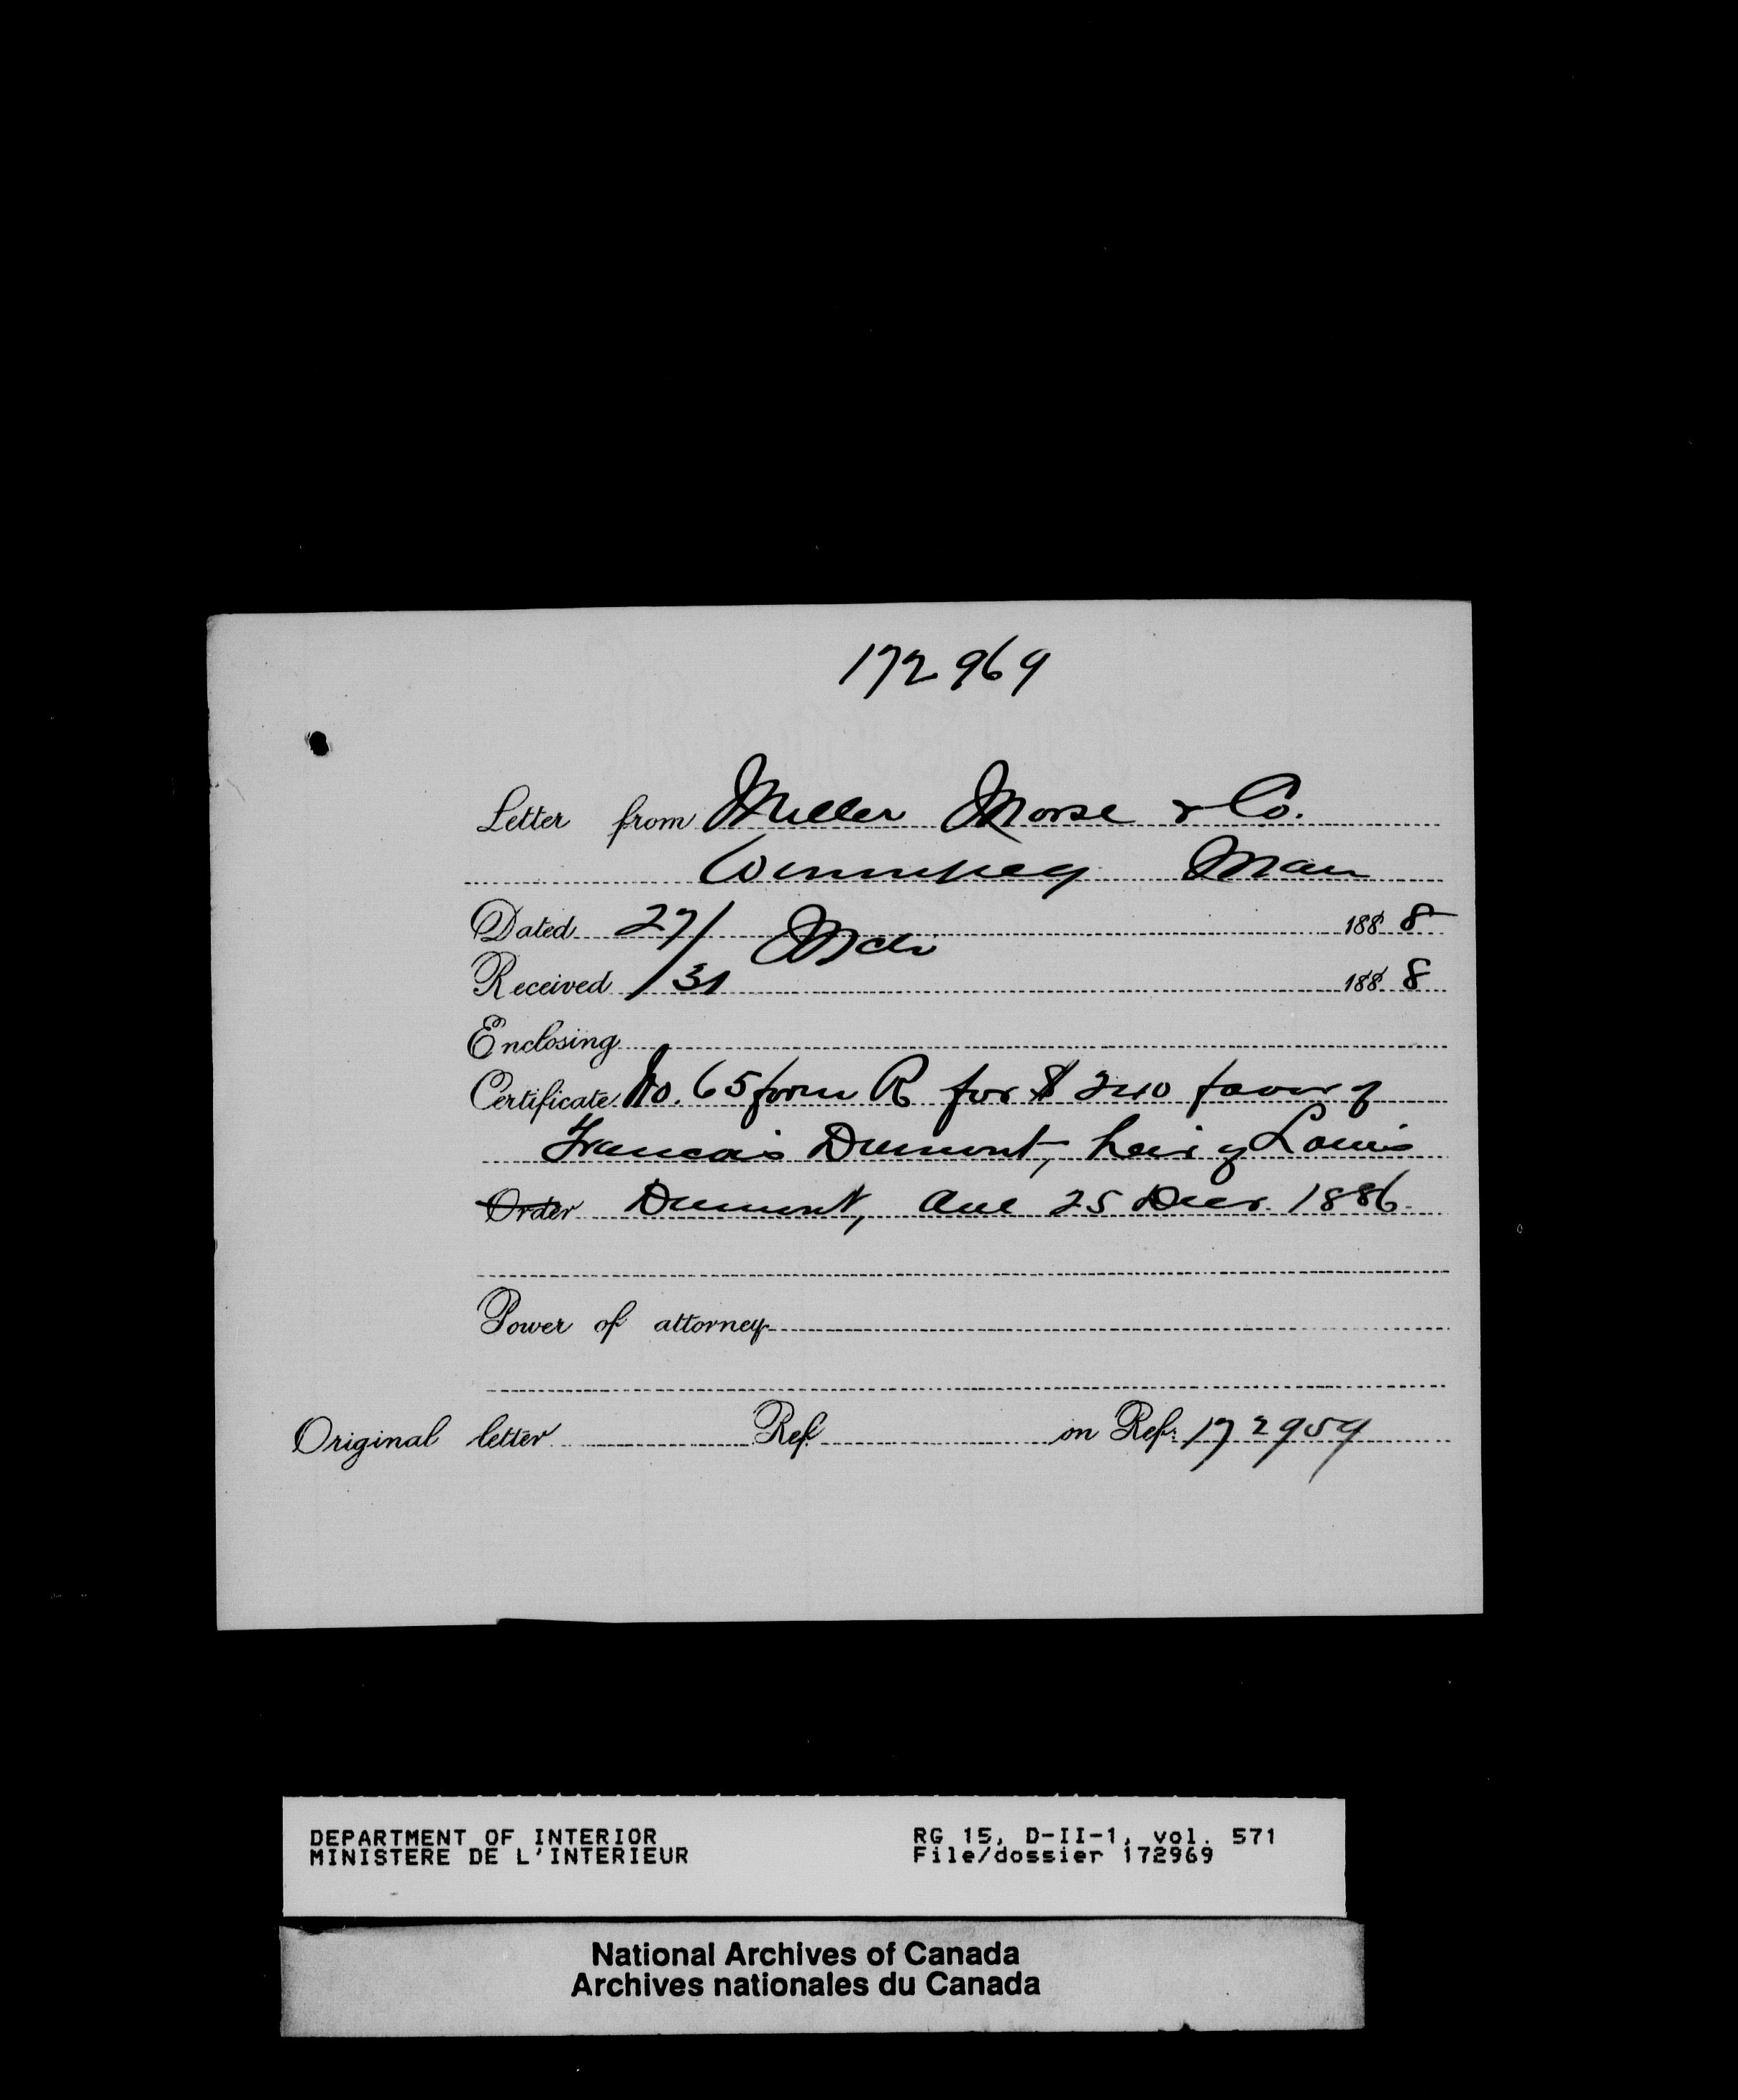 172969
Letter from Miller Morse & Co.
Winnipeg Man
Dated 27/ Mch 188 8
Received /31 188 8
Enclosing
Certificate No. 65 form R for $ 240 favor of
Francois Dumont, heir of Louis
Order Dumont, due 25 Decr. 1886
Power of attorney
Original letter Ref. on Ref: 172959
DEPARTMENT OF INTERIOR RG 15, D-II-1, vol. 571
MINISTERE DE L'INTERIEUR File/dossier 172969
National Archives of Canada
Archives nationales du Canada